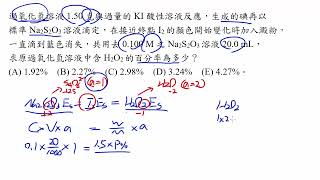 過氧化氫溶液 1.50 克與過量的 KI 酸性溶液反應,生成的碘再以
標準 Na₂S₂O₃ 溶液滴定,在接近終點 I₂ 的顏色開始變時加入澱粉,
一直滴到藍色消失,共用去 0.100 M 之 Na₂S₂O₃ 溶液 20.0 mL,
求原過氧化氫溶液中含 H₂O₂ 的百分率為多少?
(A) 1.92% (B) 2.27% (C) 2.98% (D) 3.24% (E) 4.27%。
(a=1) H₂O (a=2)
Na₂S₂O₃ Es = I₂ Es = H₂O₂ Es
C×V×a = W/M × a
0.1 × 20/1000 × 1 = 1.5×P%
H₂O₂
1×2